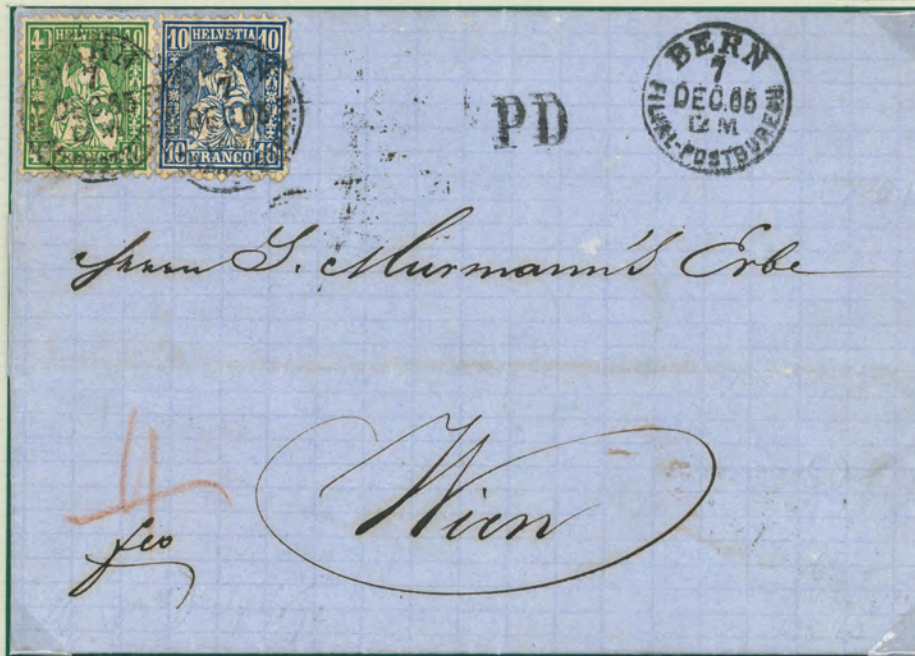 40 HELVETIA 40
40 FRANCO 40
10 HELVETIA 10
10 FRANCO 10
BERN
7
DEC. 65
12 M
FILIAL-POSTBUREAU
PD
BERN
7
Herrn J. Murmann's Erbe
Wien
fco